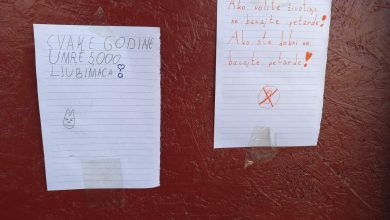 SVAKE GODINE
UMRE 5,000
LJUBIMACA!
Ako volite životinje
ne bacajte petarde!
Ako ste dobri ne
bacajte petarde!